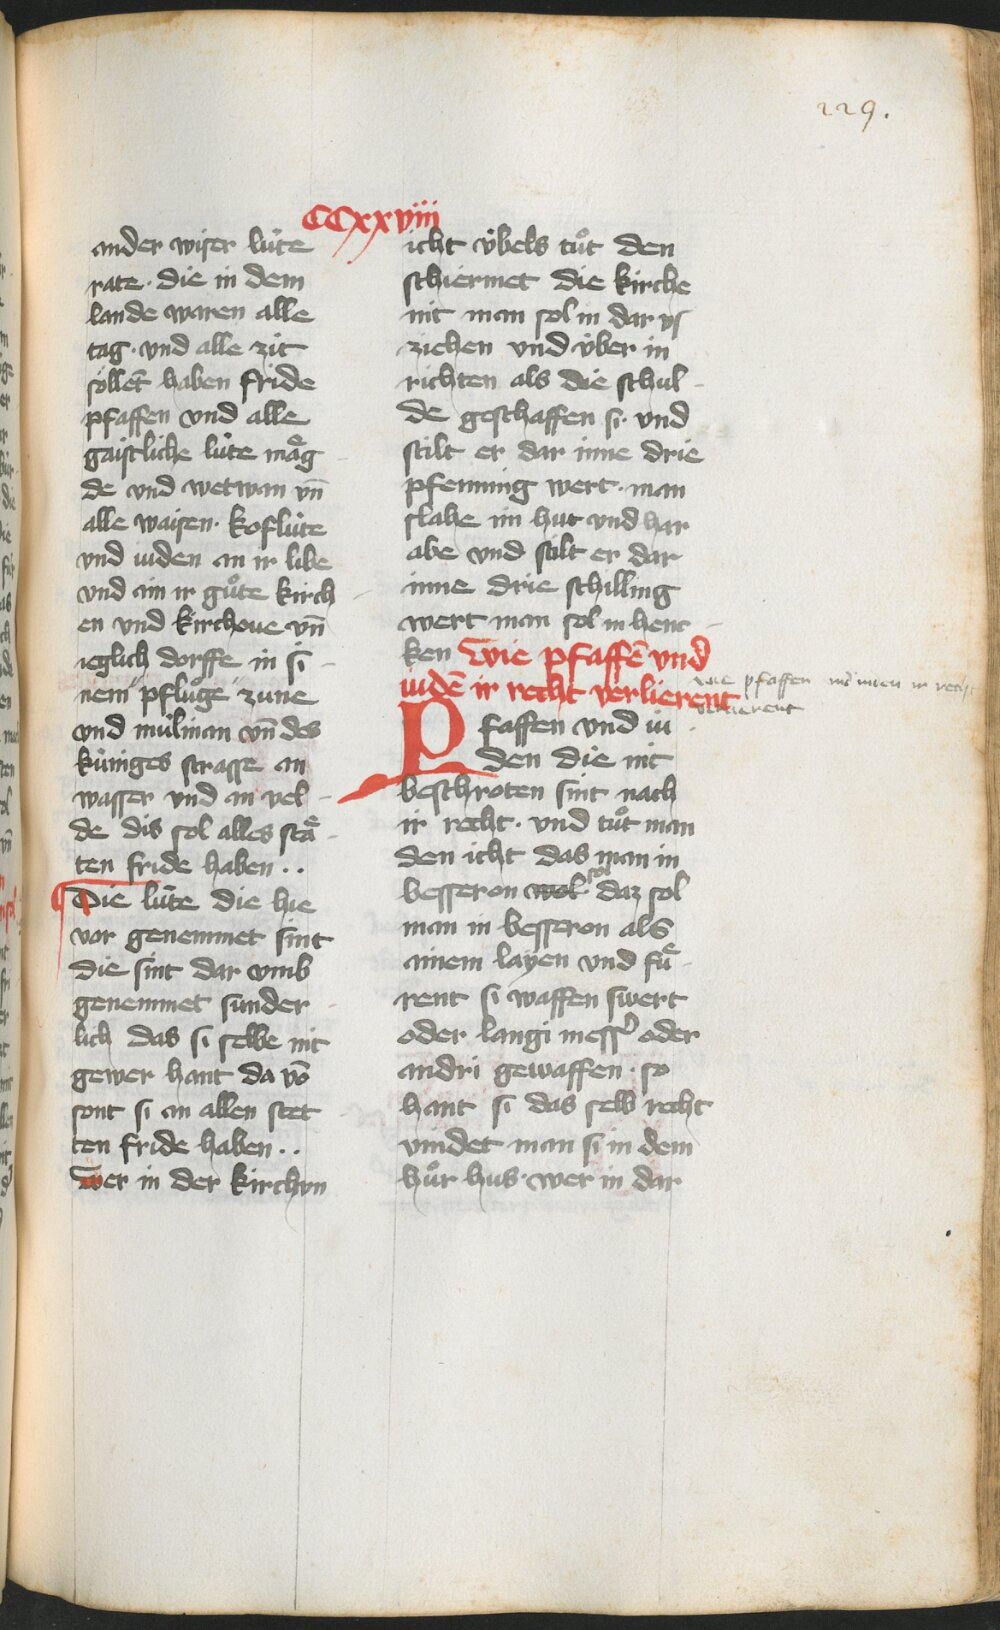 229.
CCxxviii
ander wiser lu̍te
rate · die in dem
lande waren alle
tag · vnd alle zit
söllēt haben fride
pfaffen vnd alle
gaistliche lu̍te mаͤg
de vnd wetwan vn̄
alle waisen · koflu̍te
vnd iuden an ir libe
vnd an ir guͦte kirch
en vnd kirchoue vn̄
ieglich dorffe in si
nem pfluͦge zune
vnd mu̍linan vn̄ des
ku̍niges strasse an
wasser vnd an vel
de dis sol alles staͤ
ten fride haben ··
Die lu̍te die hie
vor genemmet sint
die sint dar vmb
genemmet sunder
lich das si selbe nit
gewer hant da vō
sont si an allen stet
ten fride haben ··
Wer in der kirchvn
icht v̍bels tuͦt den
schiermet die kirche
nit man sol in dar vs
ziehen vnd v̍ber in
richten als die schul
de geschaffen si · vnd
stilt er dar inne drie
pfenning wert · man
slahe im hut vnd har
abe vnd stilt er dar
inne drie schilling
wert man sol in henc
ken Wie pfaffē vnd
iudē ir recht verlierent
wie pfaffen vn̄ iuden ir recht
verlierent
Pfaffen vnd iu
den die nit
beschroten sint nach
ir recht · vnd tuͦt man
den icht das man in
besseron wol sol daz sol
man in besseron als
ainem layen vnd fuͤ
rent si waffen swert
oder langi messʼ oder
andri gewaffen · so
hant si das selb recht
vindet man si in dem
huͦr hus · wer in dar